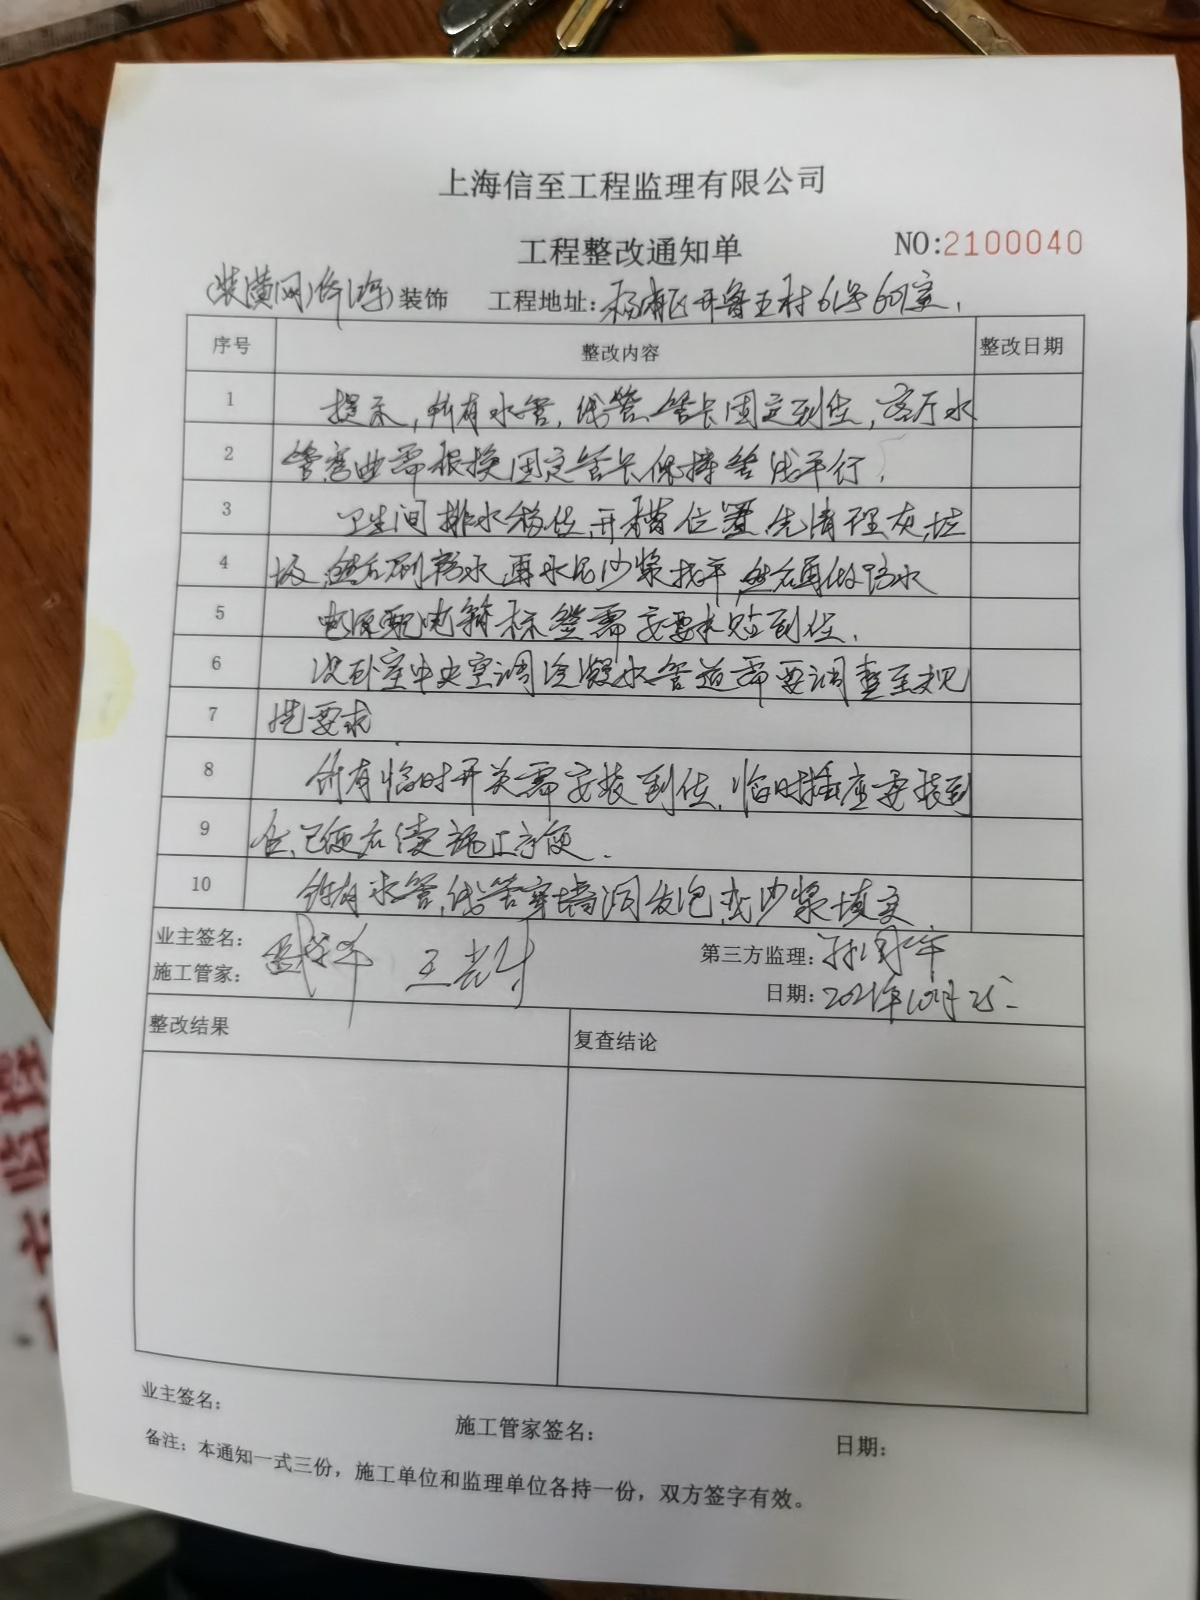 上海信至工程监理有限公司
工程整改通知单 NO:2100040
(装潢网) 装饰 工程地址: 杨浦区开鲁五村61号601室.
序号 整改内容 整改日期
1 提示,所有水管,线管、管卡固定到位,客厅水
2 管弯曲需根换固定管卡,保持管线平行.
3 卫生间排水移位,开槽位置先清理灰,垃
4 圾,然后刷防水,再水泥沙浆找平,然后再做防水
5 电源配电箱标签需按要求贴到位.
6 次卧室中央空调冷凝水管道需要调整至规
7 范要求
8 所有临时开关需安装到位,临时插座要装到
9 位,已便后续施工方便.
10 所有水管,线管穿墙洞发泡或沙浆填实
业主签名:
施工管家: 第三方监理:
日期: 2021年10月25
整改结果 复查结论
业主签名: 施工管家签名: 日期:
备注: 本通知一式三份，施工单位和监理单位各持一份，双方签字有效。